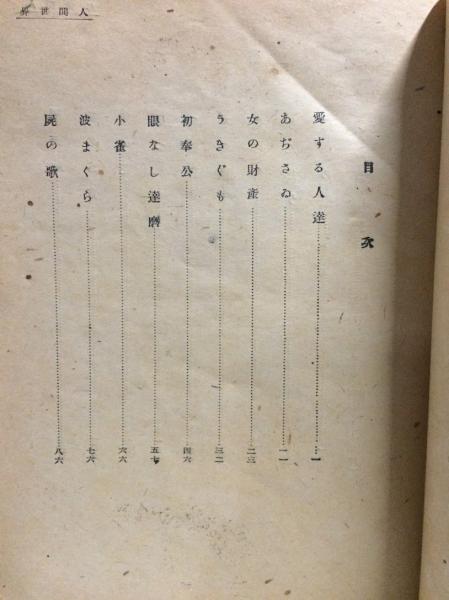 人間世界
目次
愛する人達……一
あぢさゐ……一一
女の財産……二三
うきぐも……三二
初奉公……四六
眼なし達磨……五七
小雀……六六
波まくら……七六
屍の歌……八六